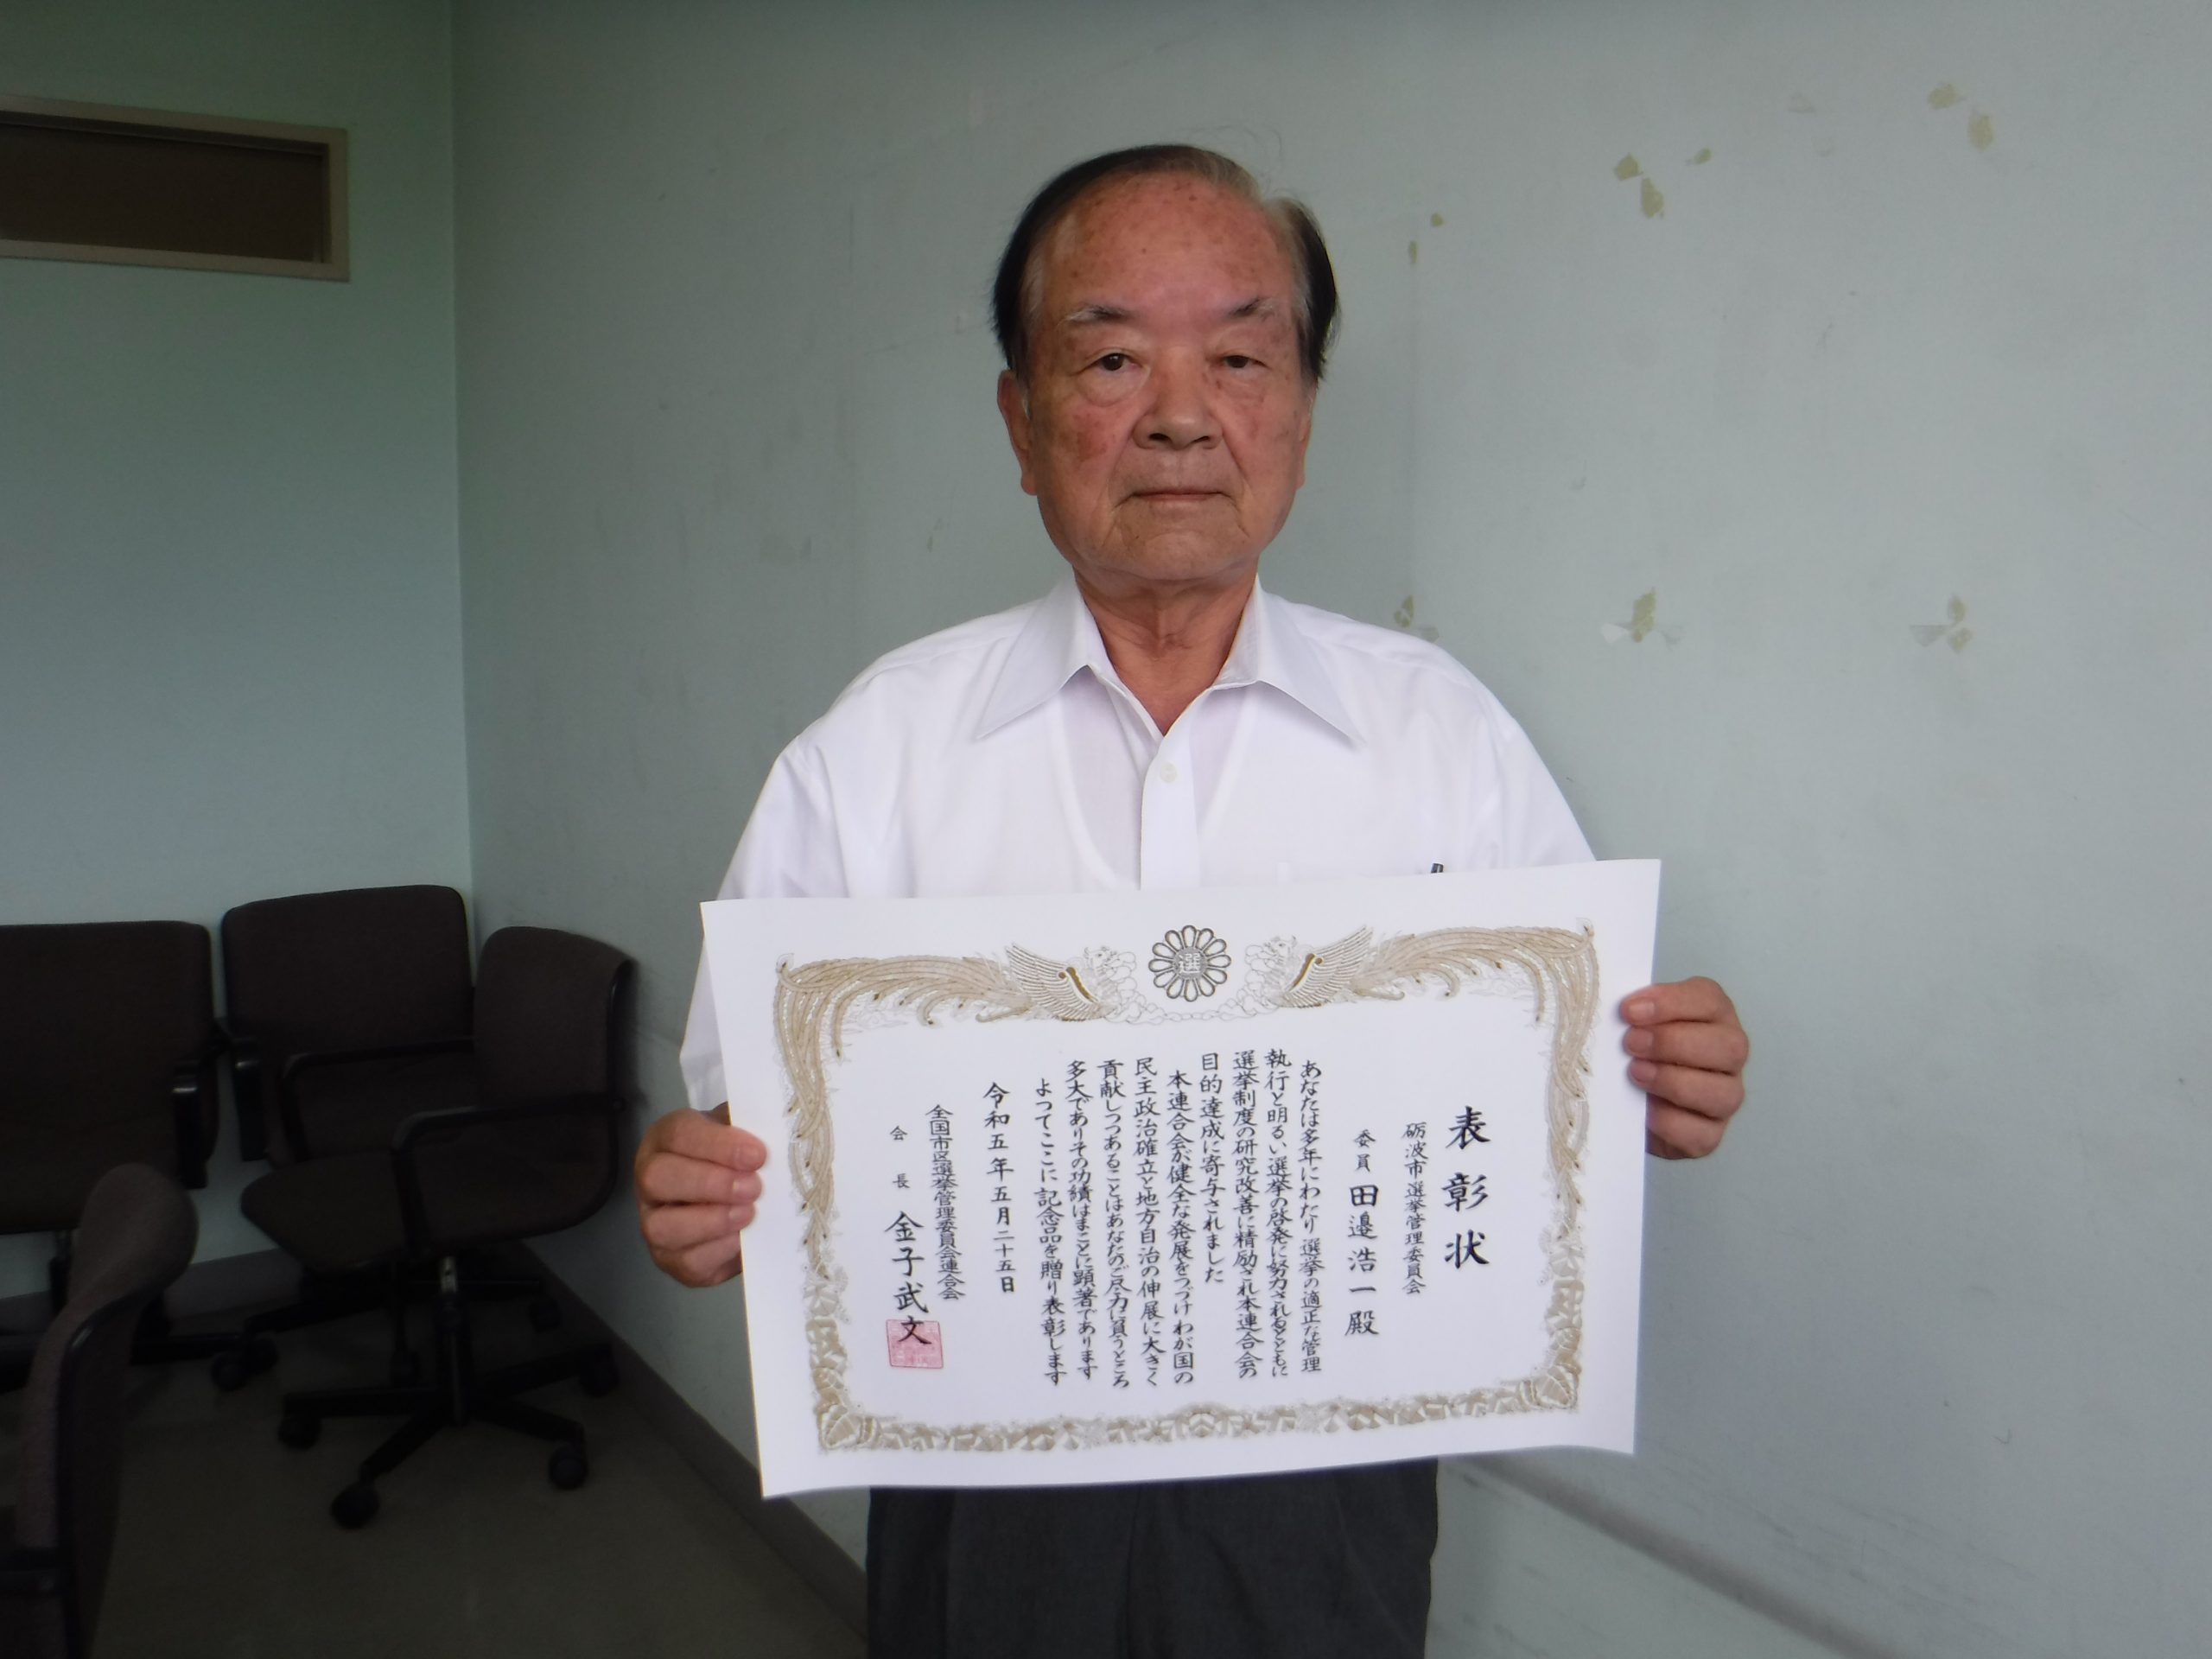 選
表彰状
砺波市選挙管理委員会
委員 田邉浩一殿
あなたは多年にわたり選挙の適正な管理
執行と明るい選挙の啓発に努力されるとともに
選挙制度の研究改善に精励され本連合会の
目的達成に寄与されました
本連合会が健全な発展をつづけわが国の
民主政治確立と地方自治の伸展に大きく
貢献しつつあることはあなたのご尽力に負うところ
多大でありその功績はまことに顕著であります
よつてここに記念品を贈り表彰します
令和五年五月二十五日
全国市区選挙管理委員会連合会
会長 金子武文